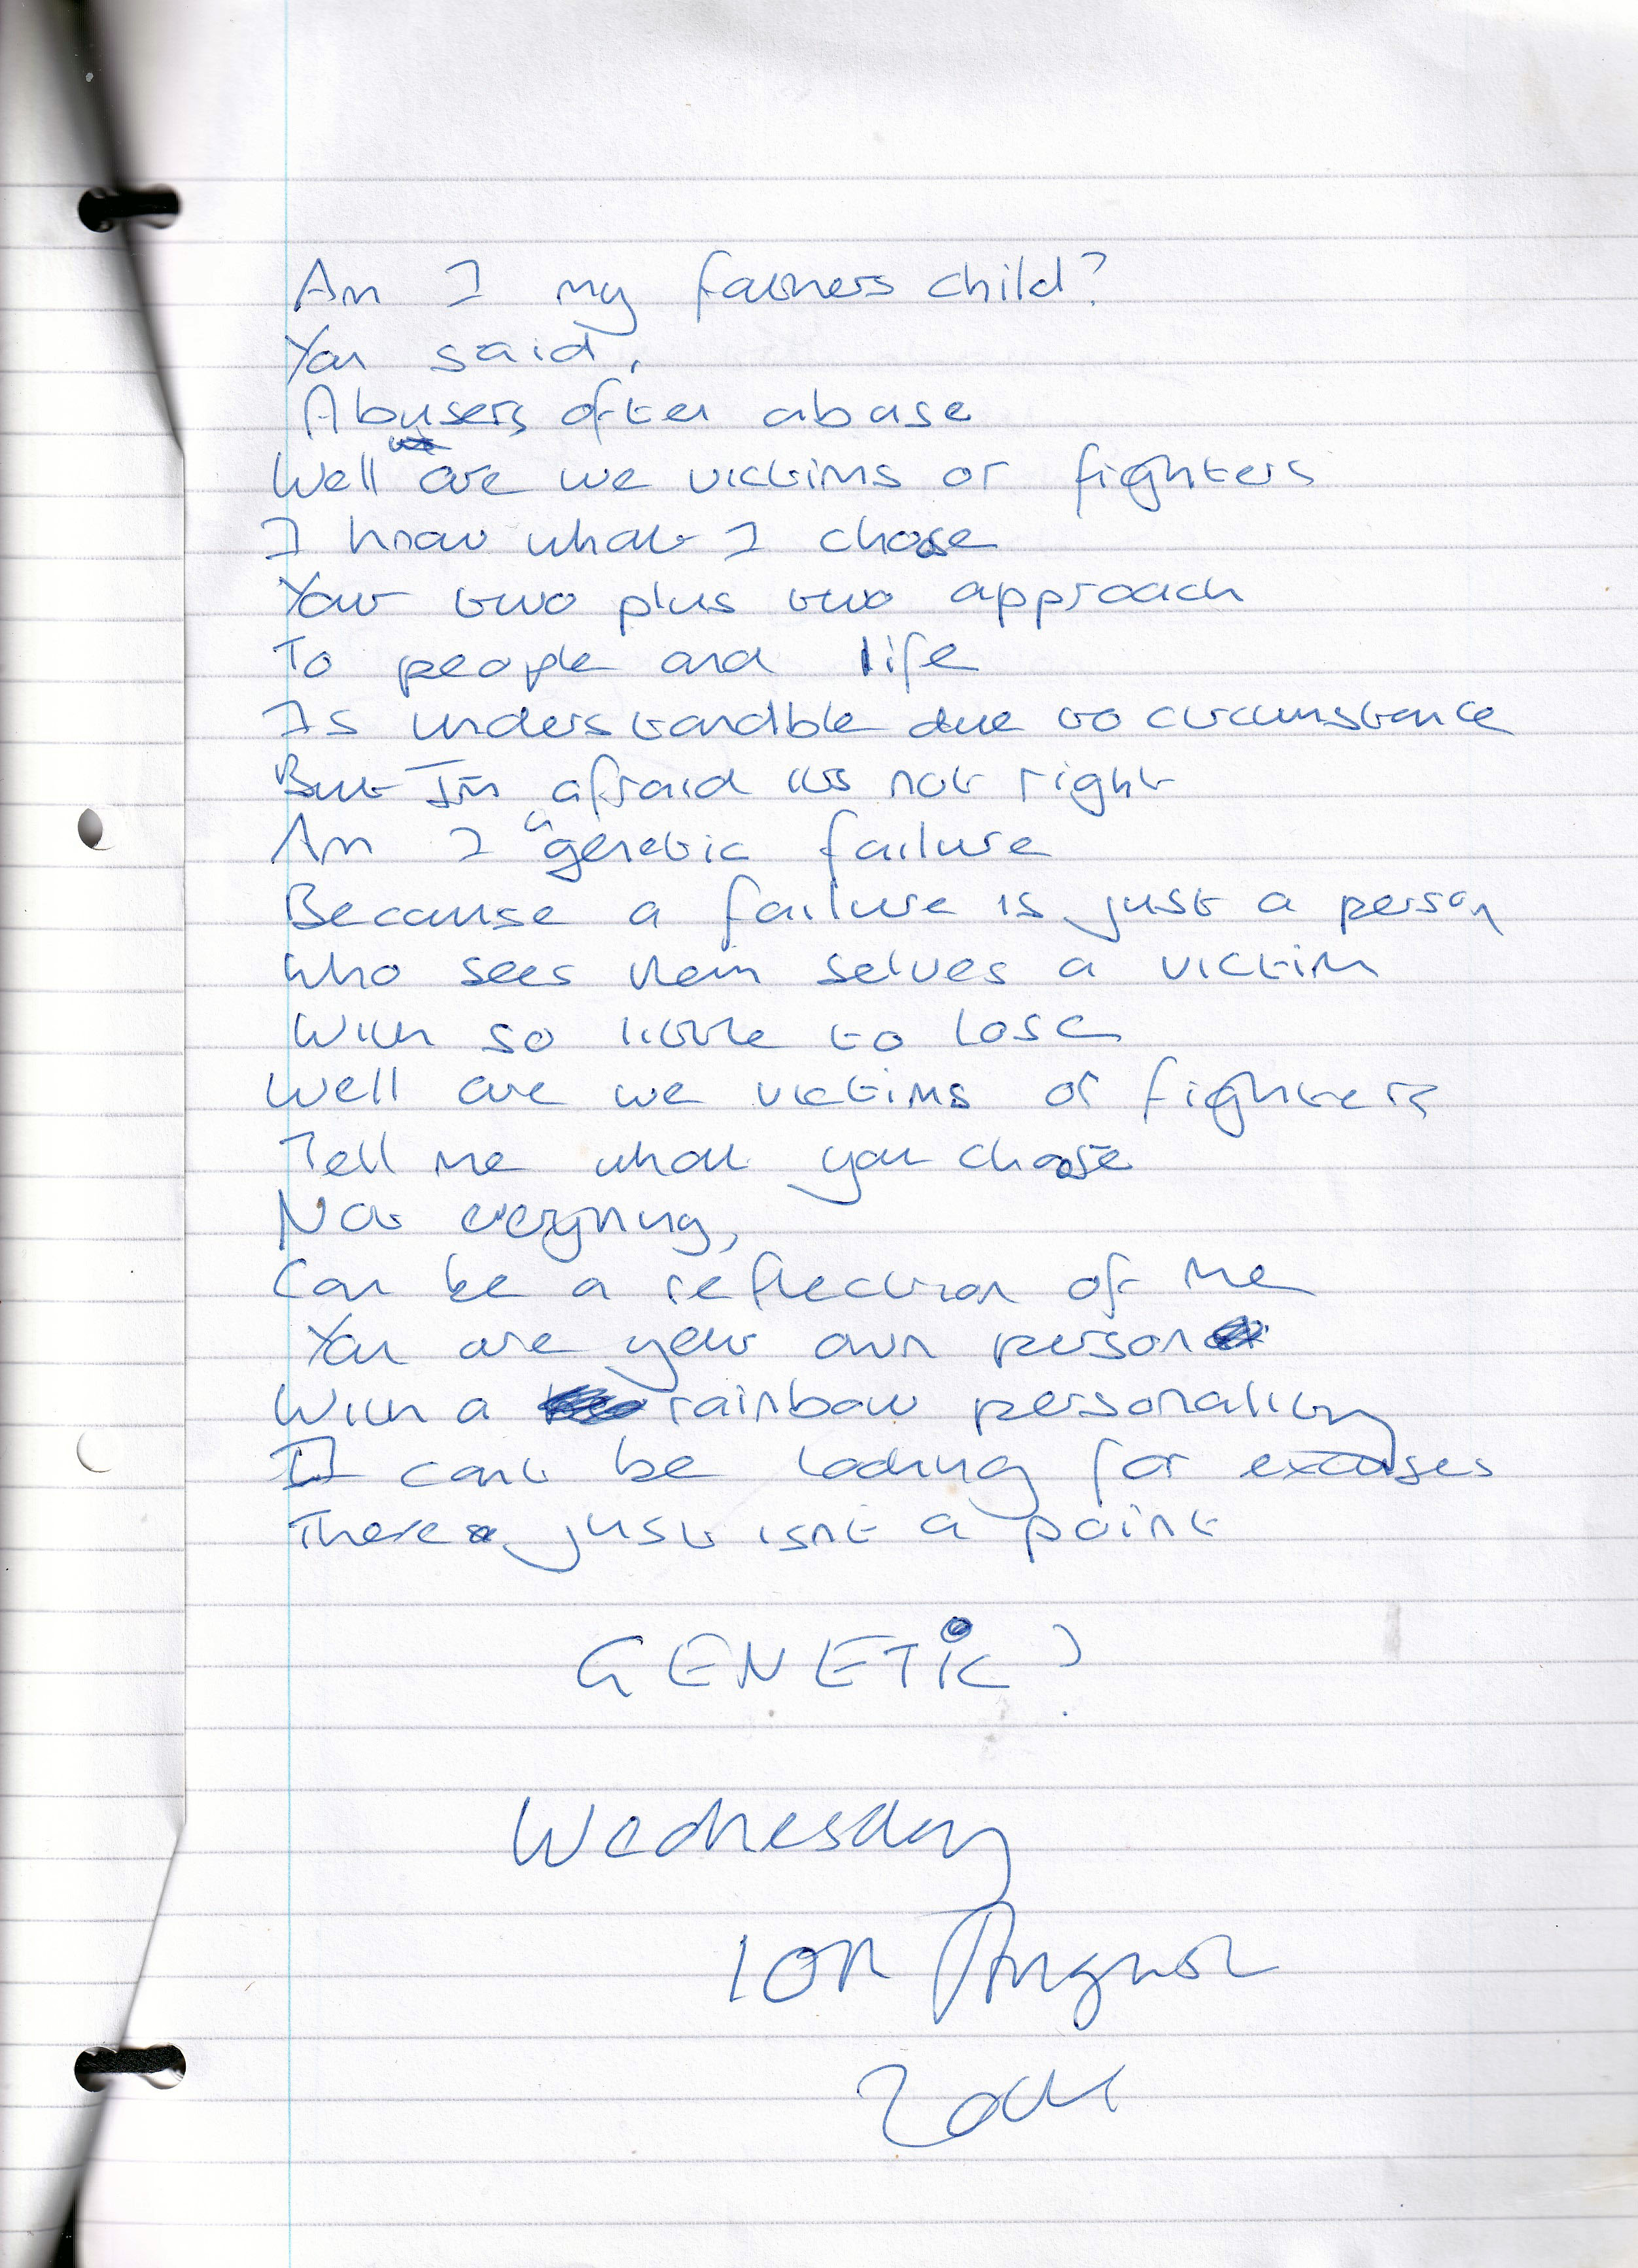 Am I my fathers child?
You said,
Abusers often abuse
Well are we victims or fighters
I know what I choose
Your two plus two approach
To people and life
Is understandble due to circumstance
But I'm afraid its not right
Am I a genetic failure
Because a failure is just a person
Who sees them selves a victim
With so little to lose
Well are we victims or fighters
Tell me what you choose
Not everything,
Can be a reflection of me
You are your own person
With a rainbow personality
I cant be looking for excuses
There just isnt a point
GENETiC?
Wednesday
10th August